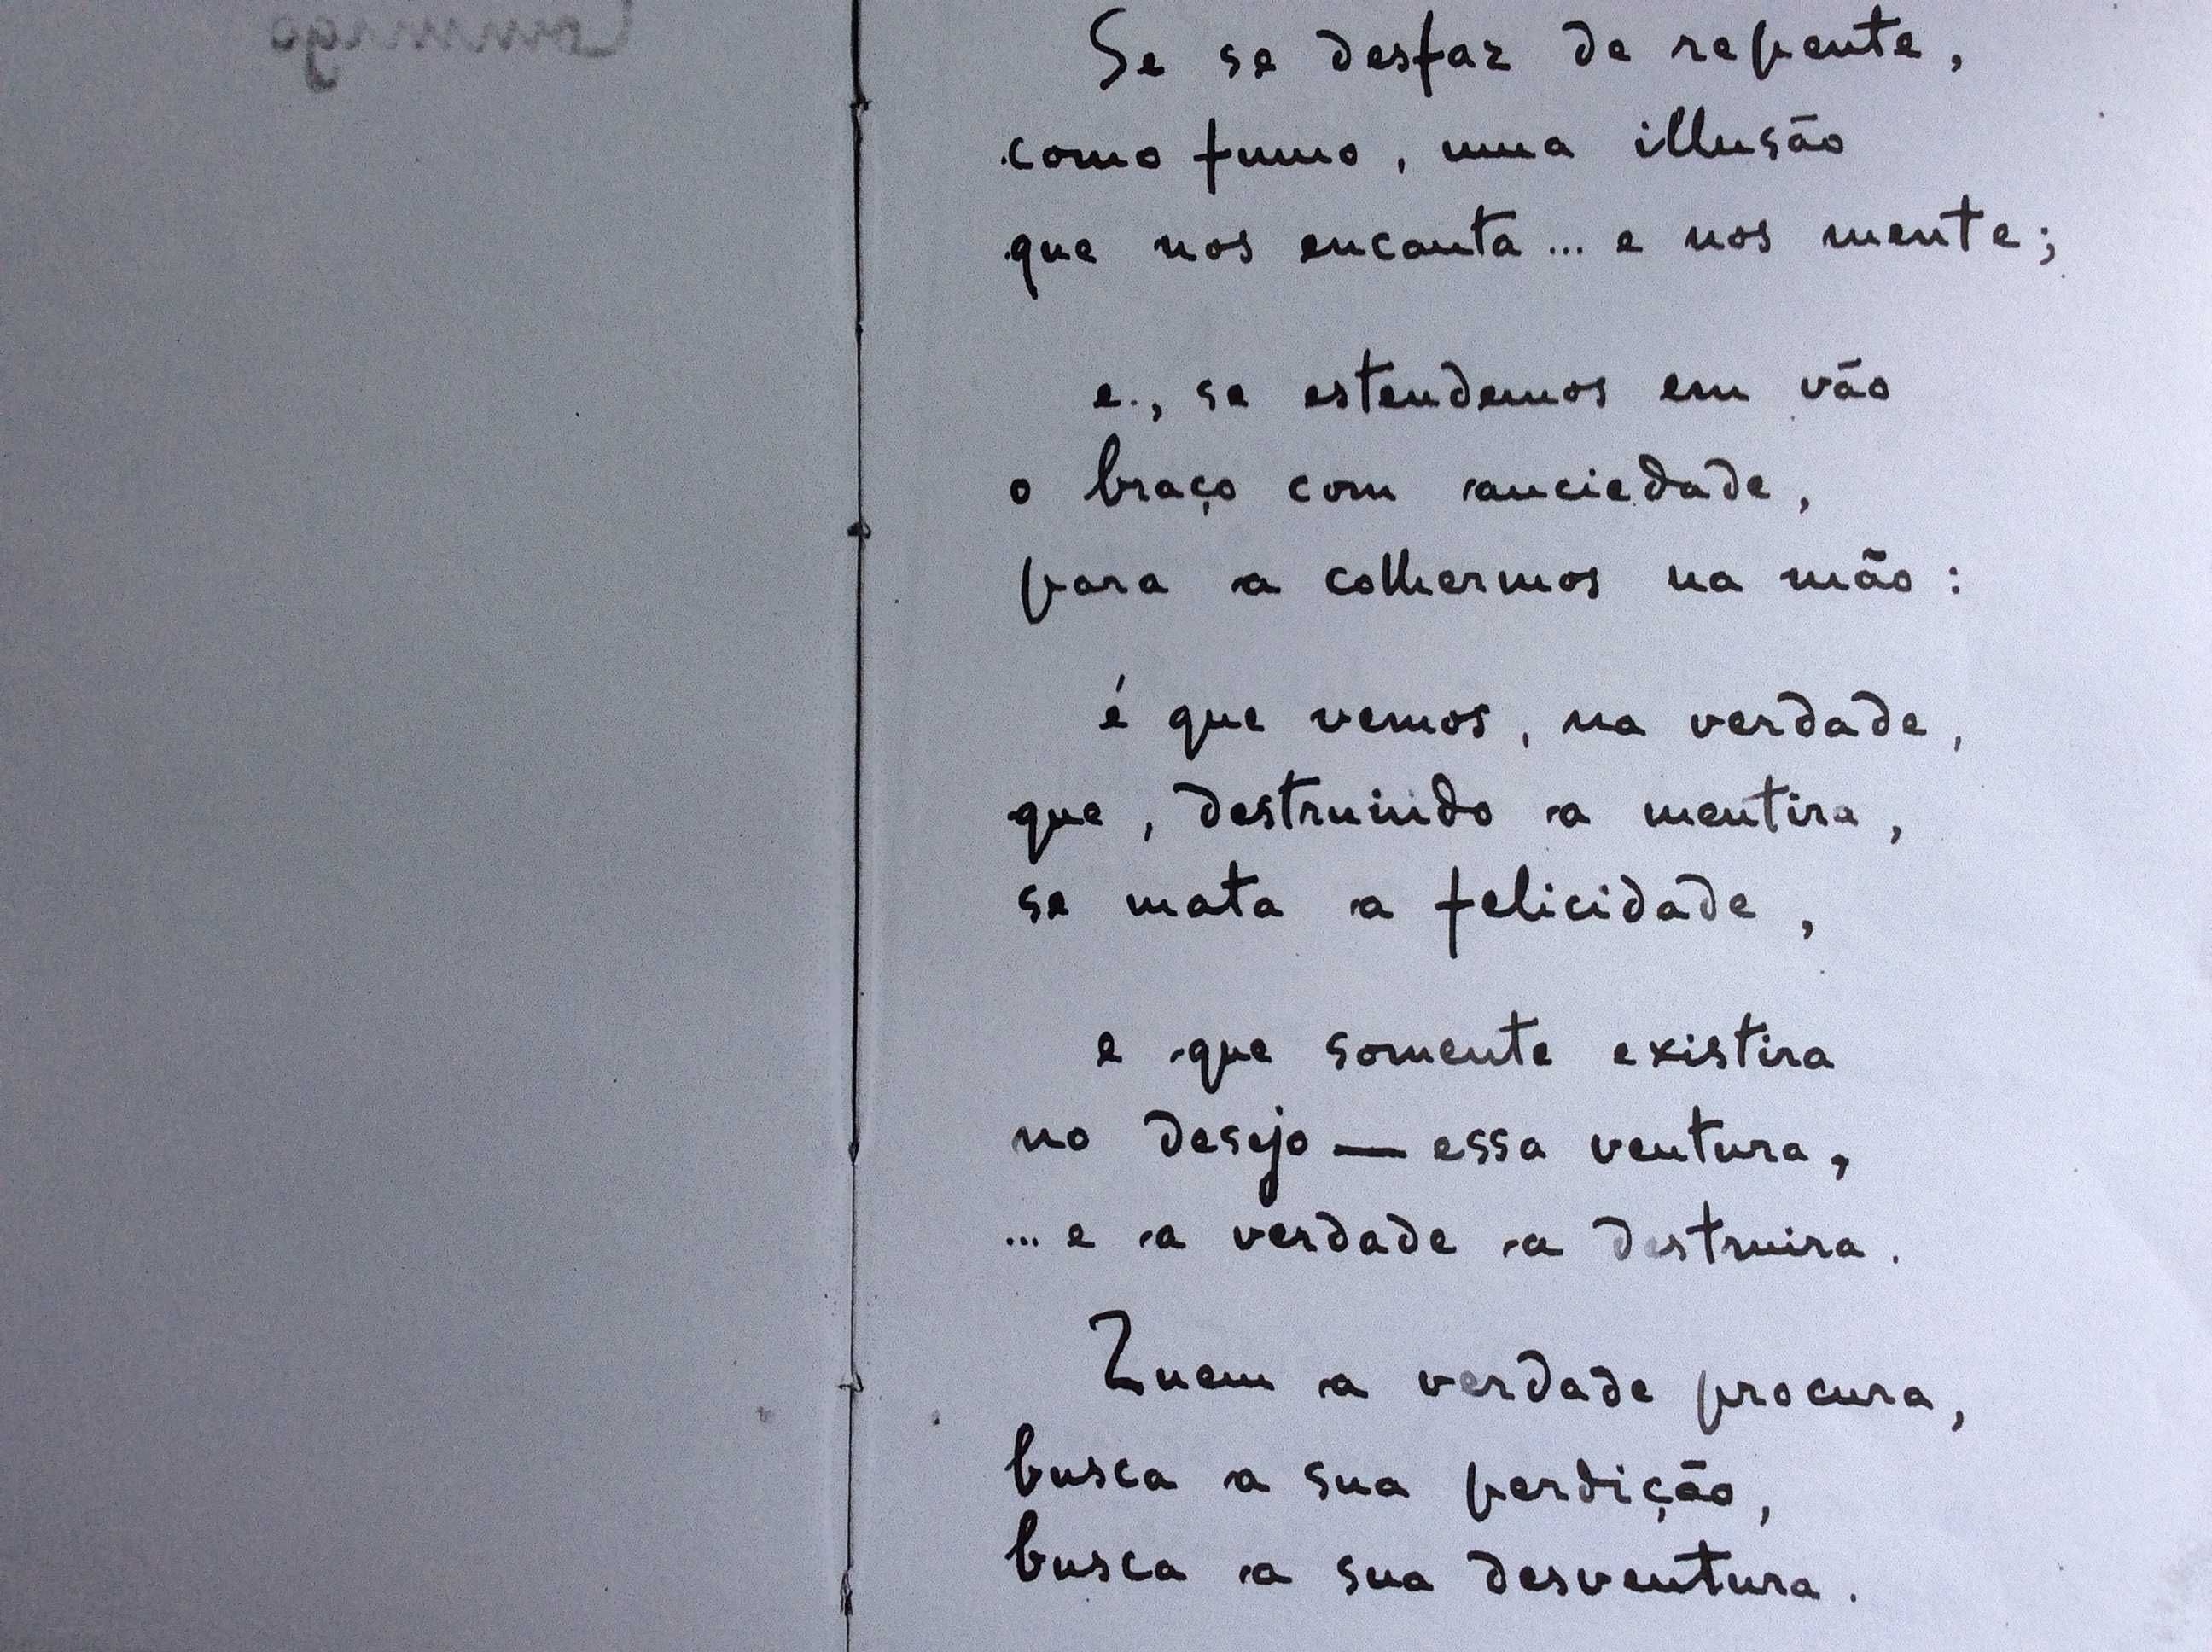 Comigo
Se se desfaz de repente,
como fumo, uma illusão
que nos encanta... e nos mente;
e, se estendemos em vão
o braço com anciedade,
para a colhermos na mão:
é que vemos, na verdade,
que, destruindo a mentira,
se mata a felicidade,
e que somente existira
no desejo — essa ventura,
... e a verdade a destruira.
Quem a verdade procura,
busca a sua perdição,
busca a sua desventura.